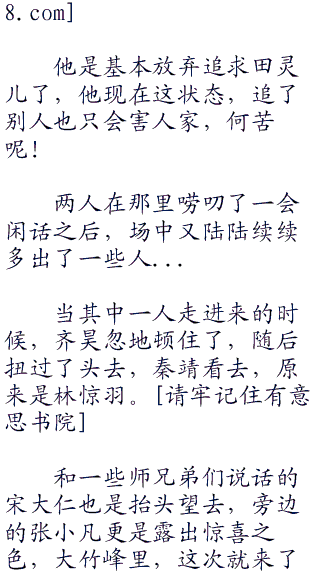 8.com]
他是基本放弃追求田灵
儿了，他现在这状态，追了
别人也只会害人家，何苦
呢！
两人在那里唠叨了一会
闲话之后，场中又陆陆续续
多出了一些人...
当其中一人走进来的时
候，齐昊忽地顿住了，随后
扭过了头去，秦靖看去，原
来是林惊羽。[请牢记住有意
思书院]
和一些师兄弟们说话的
宋大仁也是抬头望去，旁边
的张小凡更是露出惊喜之
色，大竹峰里，这次就来了